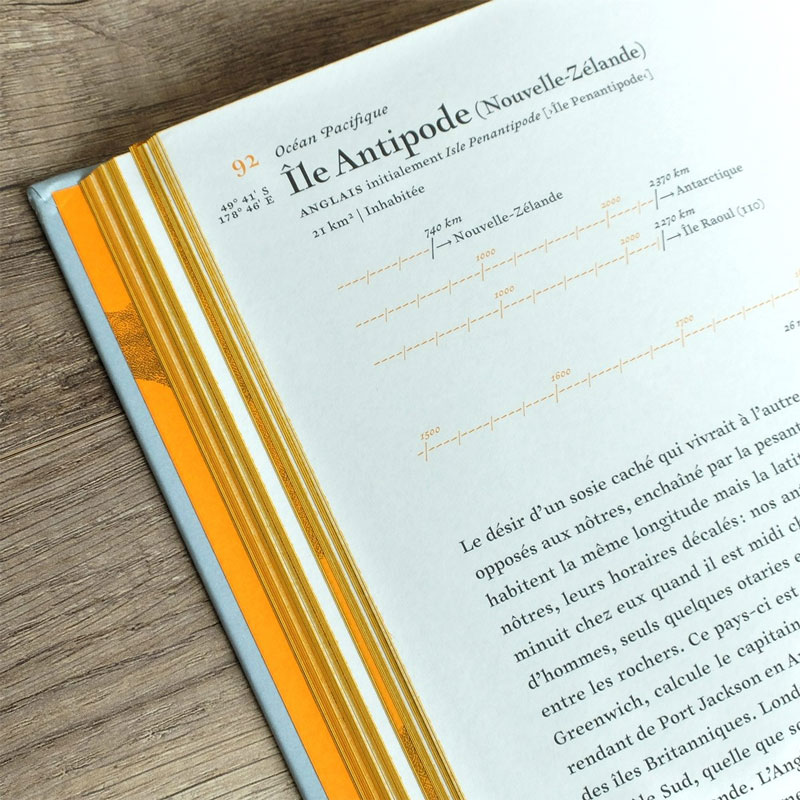 92
Océan Pacifique
Île Antipode (Nouvelle-Zélande)
49° 41' S
178° 46' E
ANGLAIS initialement Isle Penantipode [›Île Penantipode‹]
21 km² | Inhabitée
740 km
→ Nouvelle-Zélande
1000
2000
2370 km
→ Antarctique
1000
2000
2270 km
→ Île Raoul (110)
1500
1600
1700
26
Le désir d'un sosie caché qui vivrait à l'autre
opposés aux nôtres, enchaîné par la
habitent la même longitude mais la
nôtres, leurs horaires décalés : nos
minuit chez eux quand il est midi
d'hommes, seuls quelques otaries
entre les rochers. Ce pays-ci est
Greenwich, calcule le
rendant de Port Jackson en
des îles Britanniques.
le Sud, quelle que
L'